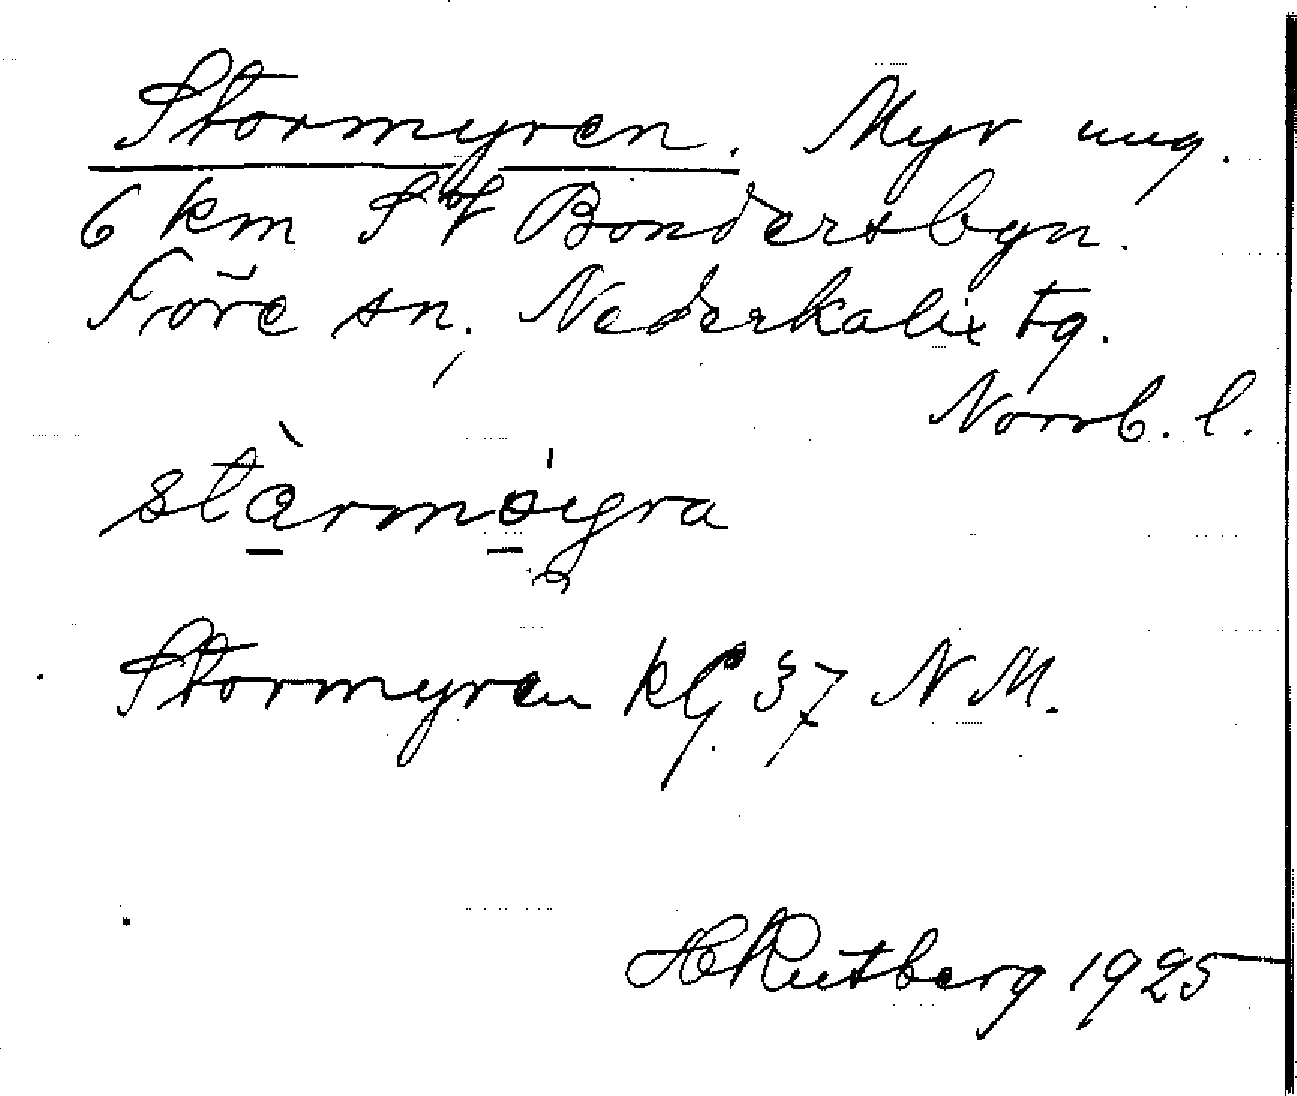 Stormyren. Myr ung.
6 km SV Bondersbyn.
Töre sn, Nederkalix tg.
Norrb. l.
stàrmǿigra
Stormyren kG 37 N M.
H Rutberg 1925